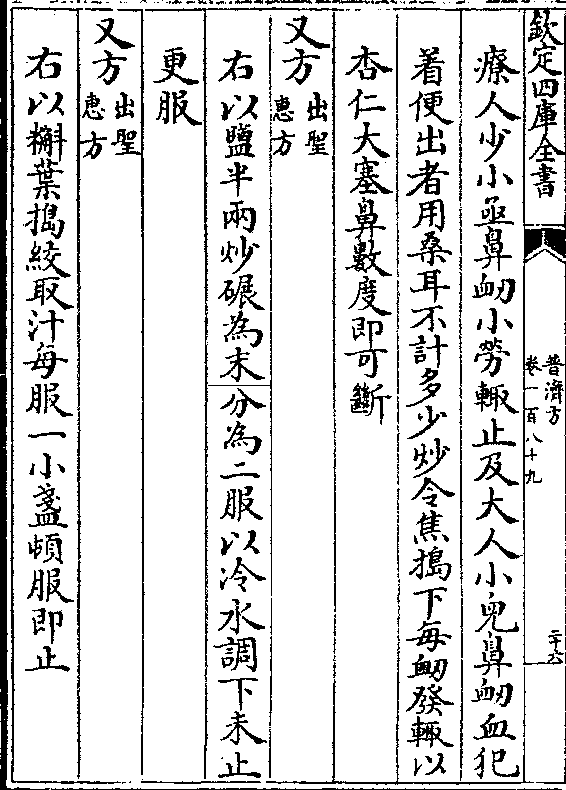 欽定四庫全書
普濟方
卷一百八十九
二十六
療人少小亟鼻衂小勞輙止及大人小兒鼻衂血犯
着便出者用桑耳不計多少炒令焦搗下每衂發輙以
杏仁大塞鼻數度即可斷
又方出聖惠方
右以鹽半兩炒碾為末分為二服以冷水調下未止
更服
又方出聖惠方
右以槲葉搗絞取汁每服一小盞頓服即止